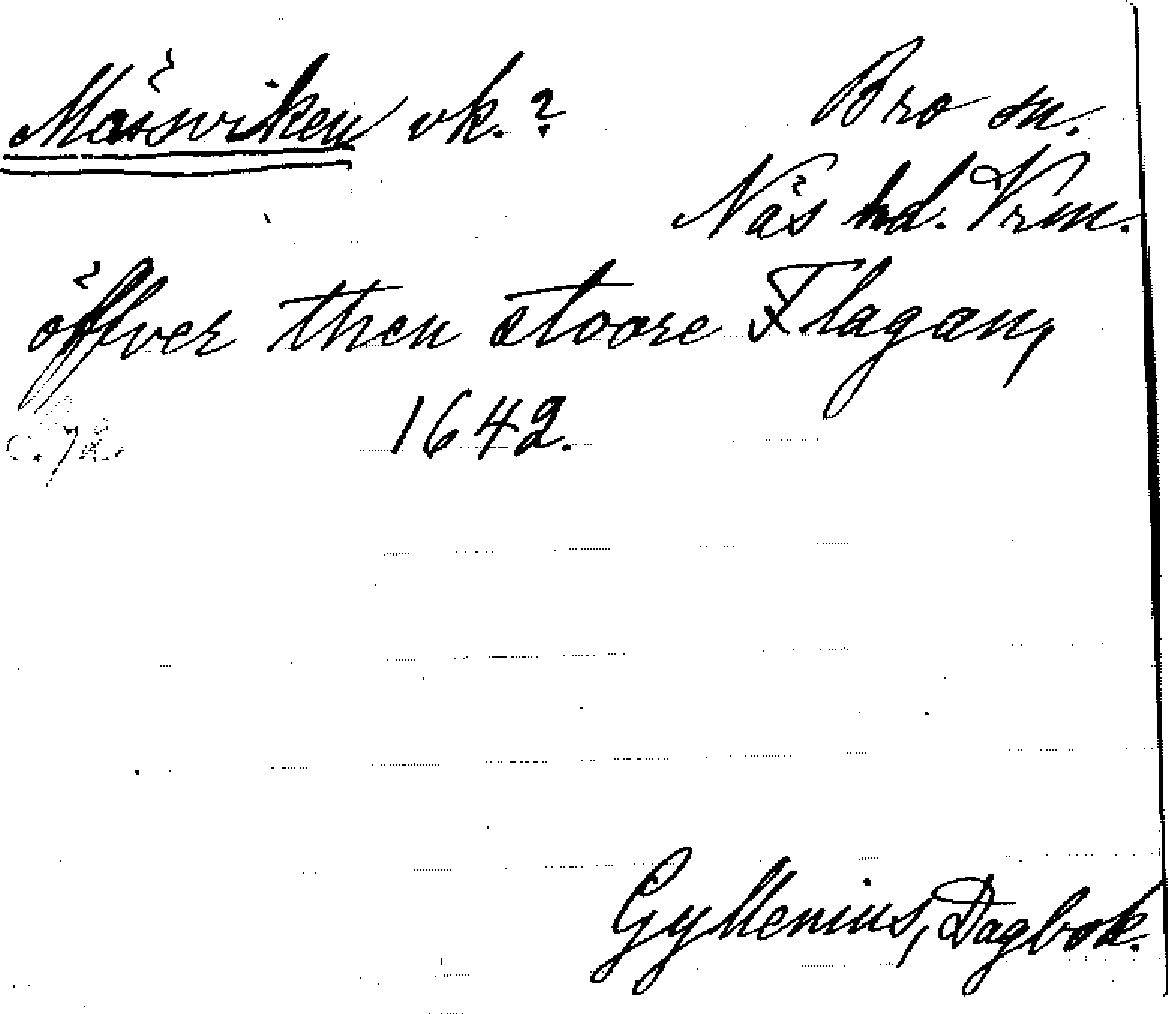 Mässviken vk.?
Bro sn.
Näs hd. Vrm.
öffver then stoore Flagan,
1642.
Gyllenius, Dagbok.